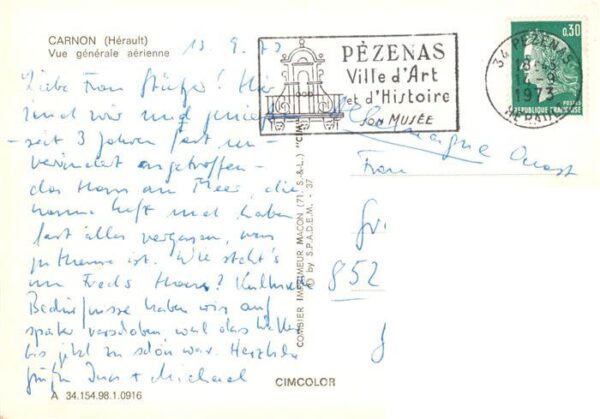 CARNON (Hérault)
Vue générale aérienne
13. 9. 73
Liebe Frau
! Hier
sind wir und
- seit 3 Jahren fast un-
verändert angetroffen -
das Haus am Meer, die
warme Luft und haben
fast alles vergessen, was
zu Hause ist. Wie steht's
um Freds Haus?
Bedürfnisse haben wir auf
später verschoben weil das Wetter
bis jetzt so schön war. Herzliche
Grüße + Michael
CIMCOLOR
A 34.154.98.1.0916
COMBIER IMPRIMEUR MACON (71 S.-&-L.) "CIM"
© by S.P.A.D.E.M. - 37
PÉZENAS
Ville d'Art
et d'Histoire
SON MUSÉE
34 PÉZENAS
1973
HERAULT
0,30
POSTES
REPUBLIQUE FRANÇAISE
Allemagne Ouest
Frau
852